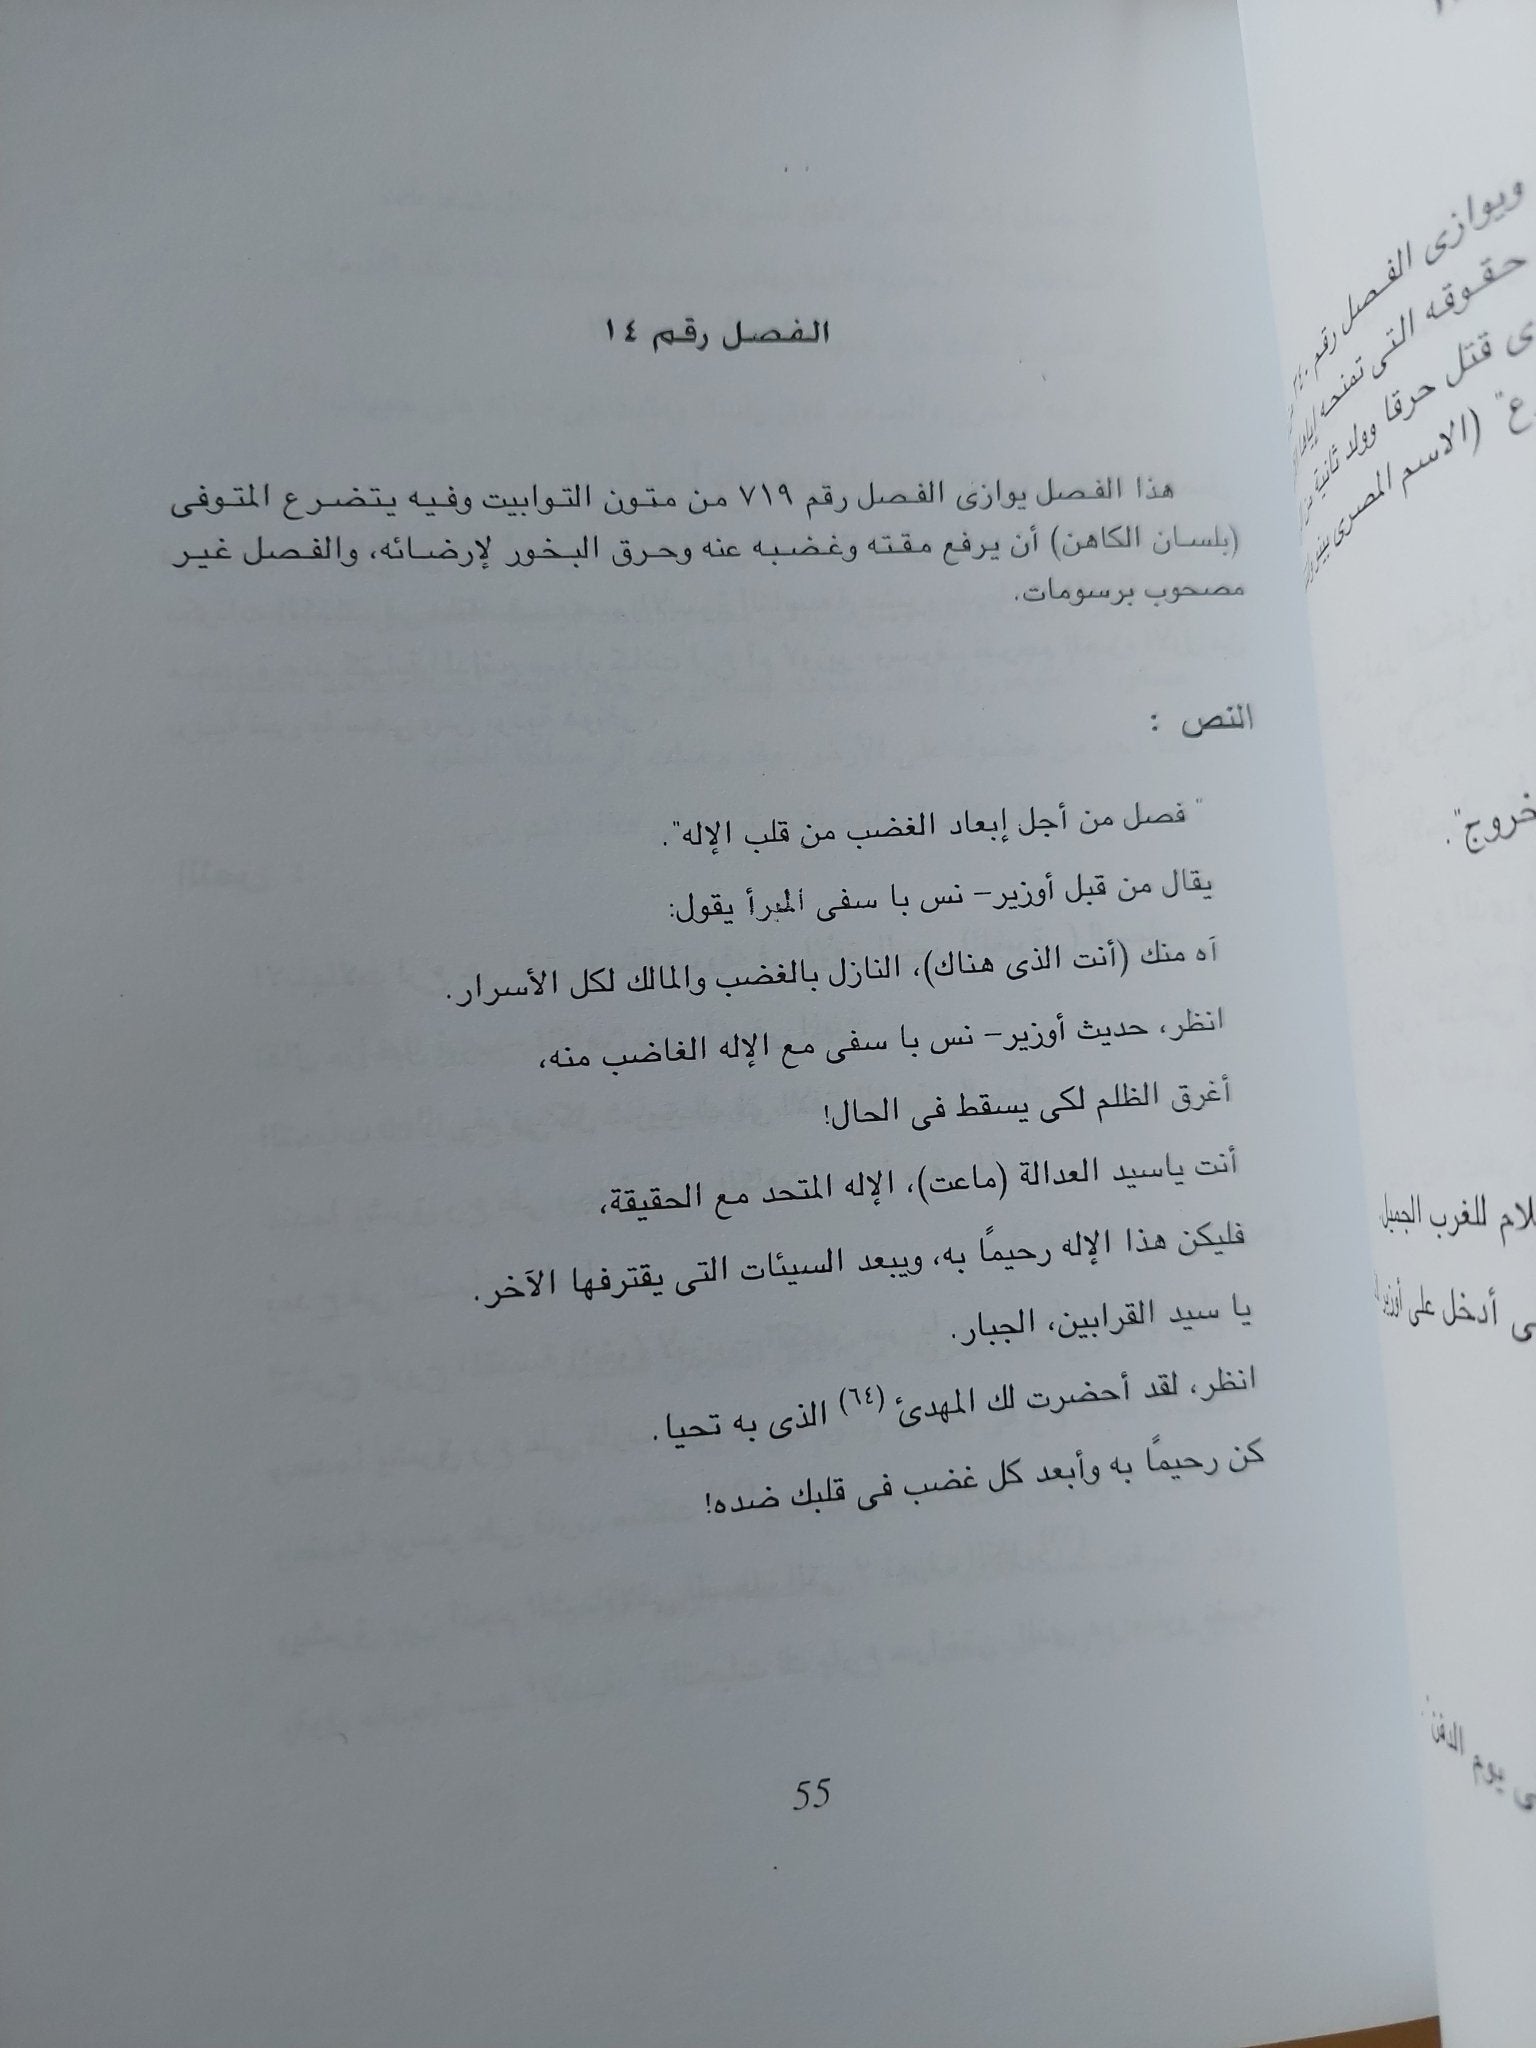 الفصل رقم ١٤
هذا الفصل يوازى الفصل رقم ٧١٩ من متون التوابيت وفيه يتضرع المتوفى
(بلسان الكاهن) أن يرفع مقته وغضبه عنه وحرق البخور لإرضائه، والفصل غير
مصحوب برسومات.
النص :
" فصل من أجل إبعاد الغضب من قلب الإله".
يقال من قبل أوزير– نس با سفى المبرأ يقول:
آه منك (أنت الذى هناك)، النازل بالغضب والمالك لكل الأسرار.
انظر، حديث أوزير– نس با سفى مع الإله الغاضب منه،
أغرق الظلم لكى يسقط فى الحال!
أنت ياسيد العدالة (ماعت)، الإله المتحد مع الحقيقة،
فليكن هذا الإله رحيمًا به، ويبعد السيئات التى يقترفها الآخر.
يا سيد القرابين، الجبار.
انظر، لقد أحضرت لك المهدئ (٦٤) الذى به تحيا.
كن رحيمًا به وأبعد كل غضب فى قلبك ضده!
55
ويوازى الفصل رقم
حقوقه التى تمنحه إياها
قتل حرقا وولد ثانية
(الاسم المصرى
خروج".
للغرب الجميل
أدخل على أوزير
يوم الدفن